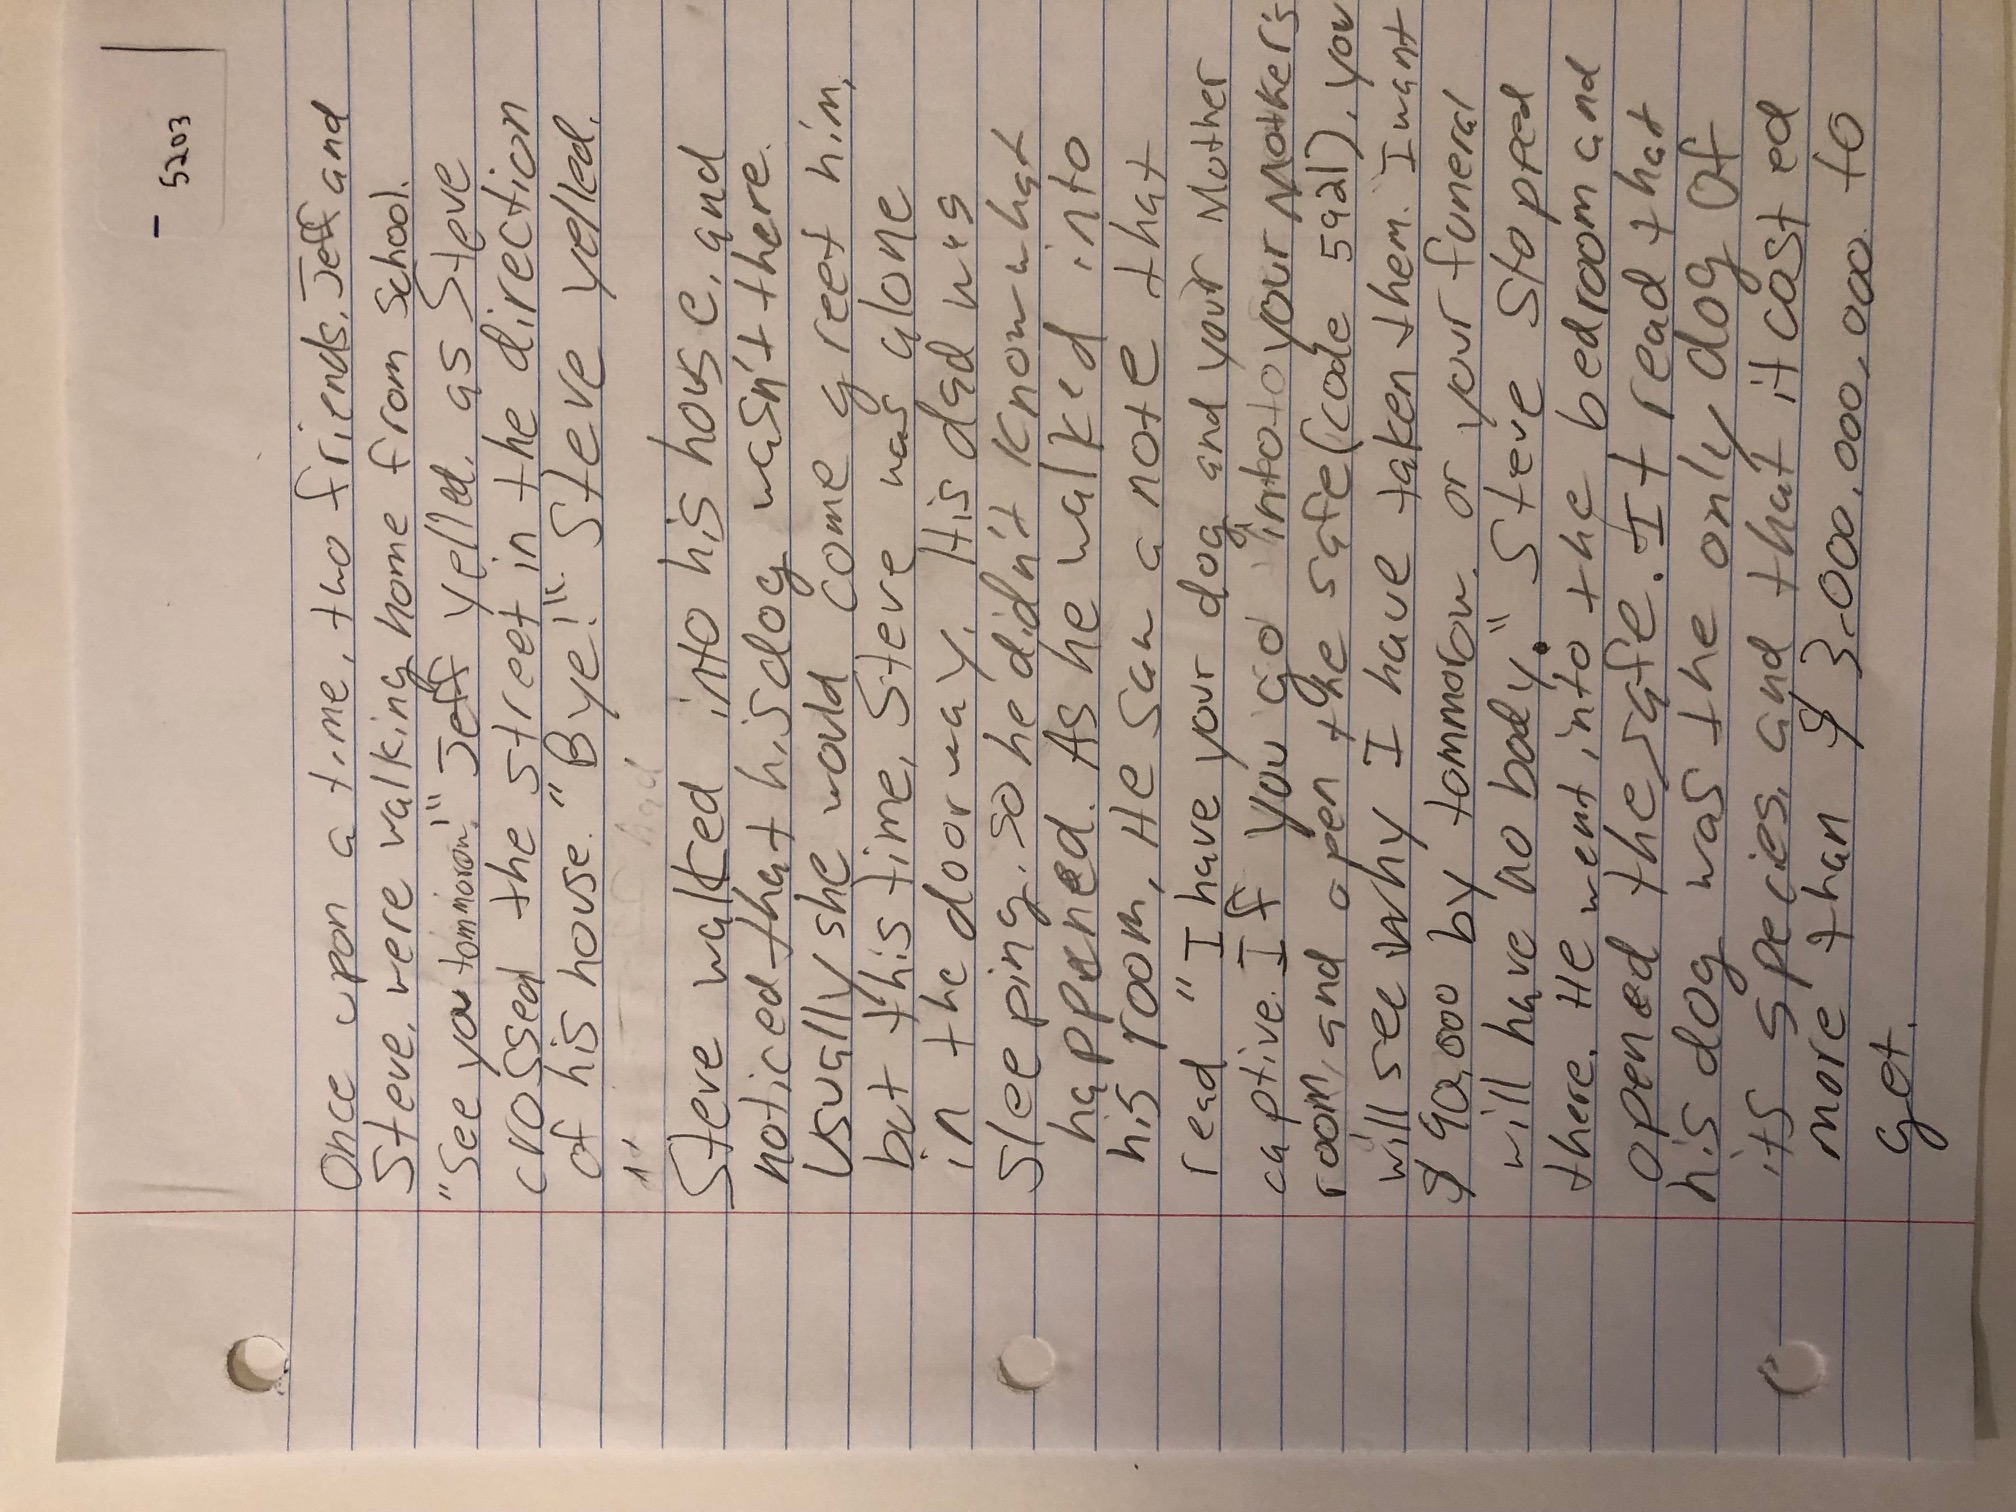 5203
Once upon a time, two friends, Jeff and
Steve, were walking home from School.
"See you tommorow!" Jeff yelled, as Steve
crossed the street in the direction
of his house. "Bye!" Steve yelled.
At had
Steve walked into his house, and
noticed that his dog wasn't there.
Usually she would come greet him,
but this time, Steve was alone
in the doorway. His dad was
sleeping, so he didn't know what
happened. As he walked into
his room, He saw a note that
read "I have your dog and your Mother
captive. If you go into to your Mother's
room, and open the safe (code 5921), you
will see why I have taken them. I want
$90,000 by tommorow, or your funeral
will have no body." Steve Stopped
there. He went into the bedroom and
opened the safe. It read that
his dog was the only dog of
its species, and that it costed
more than $3,000,000,000 to
get.